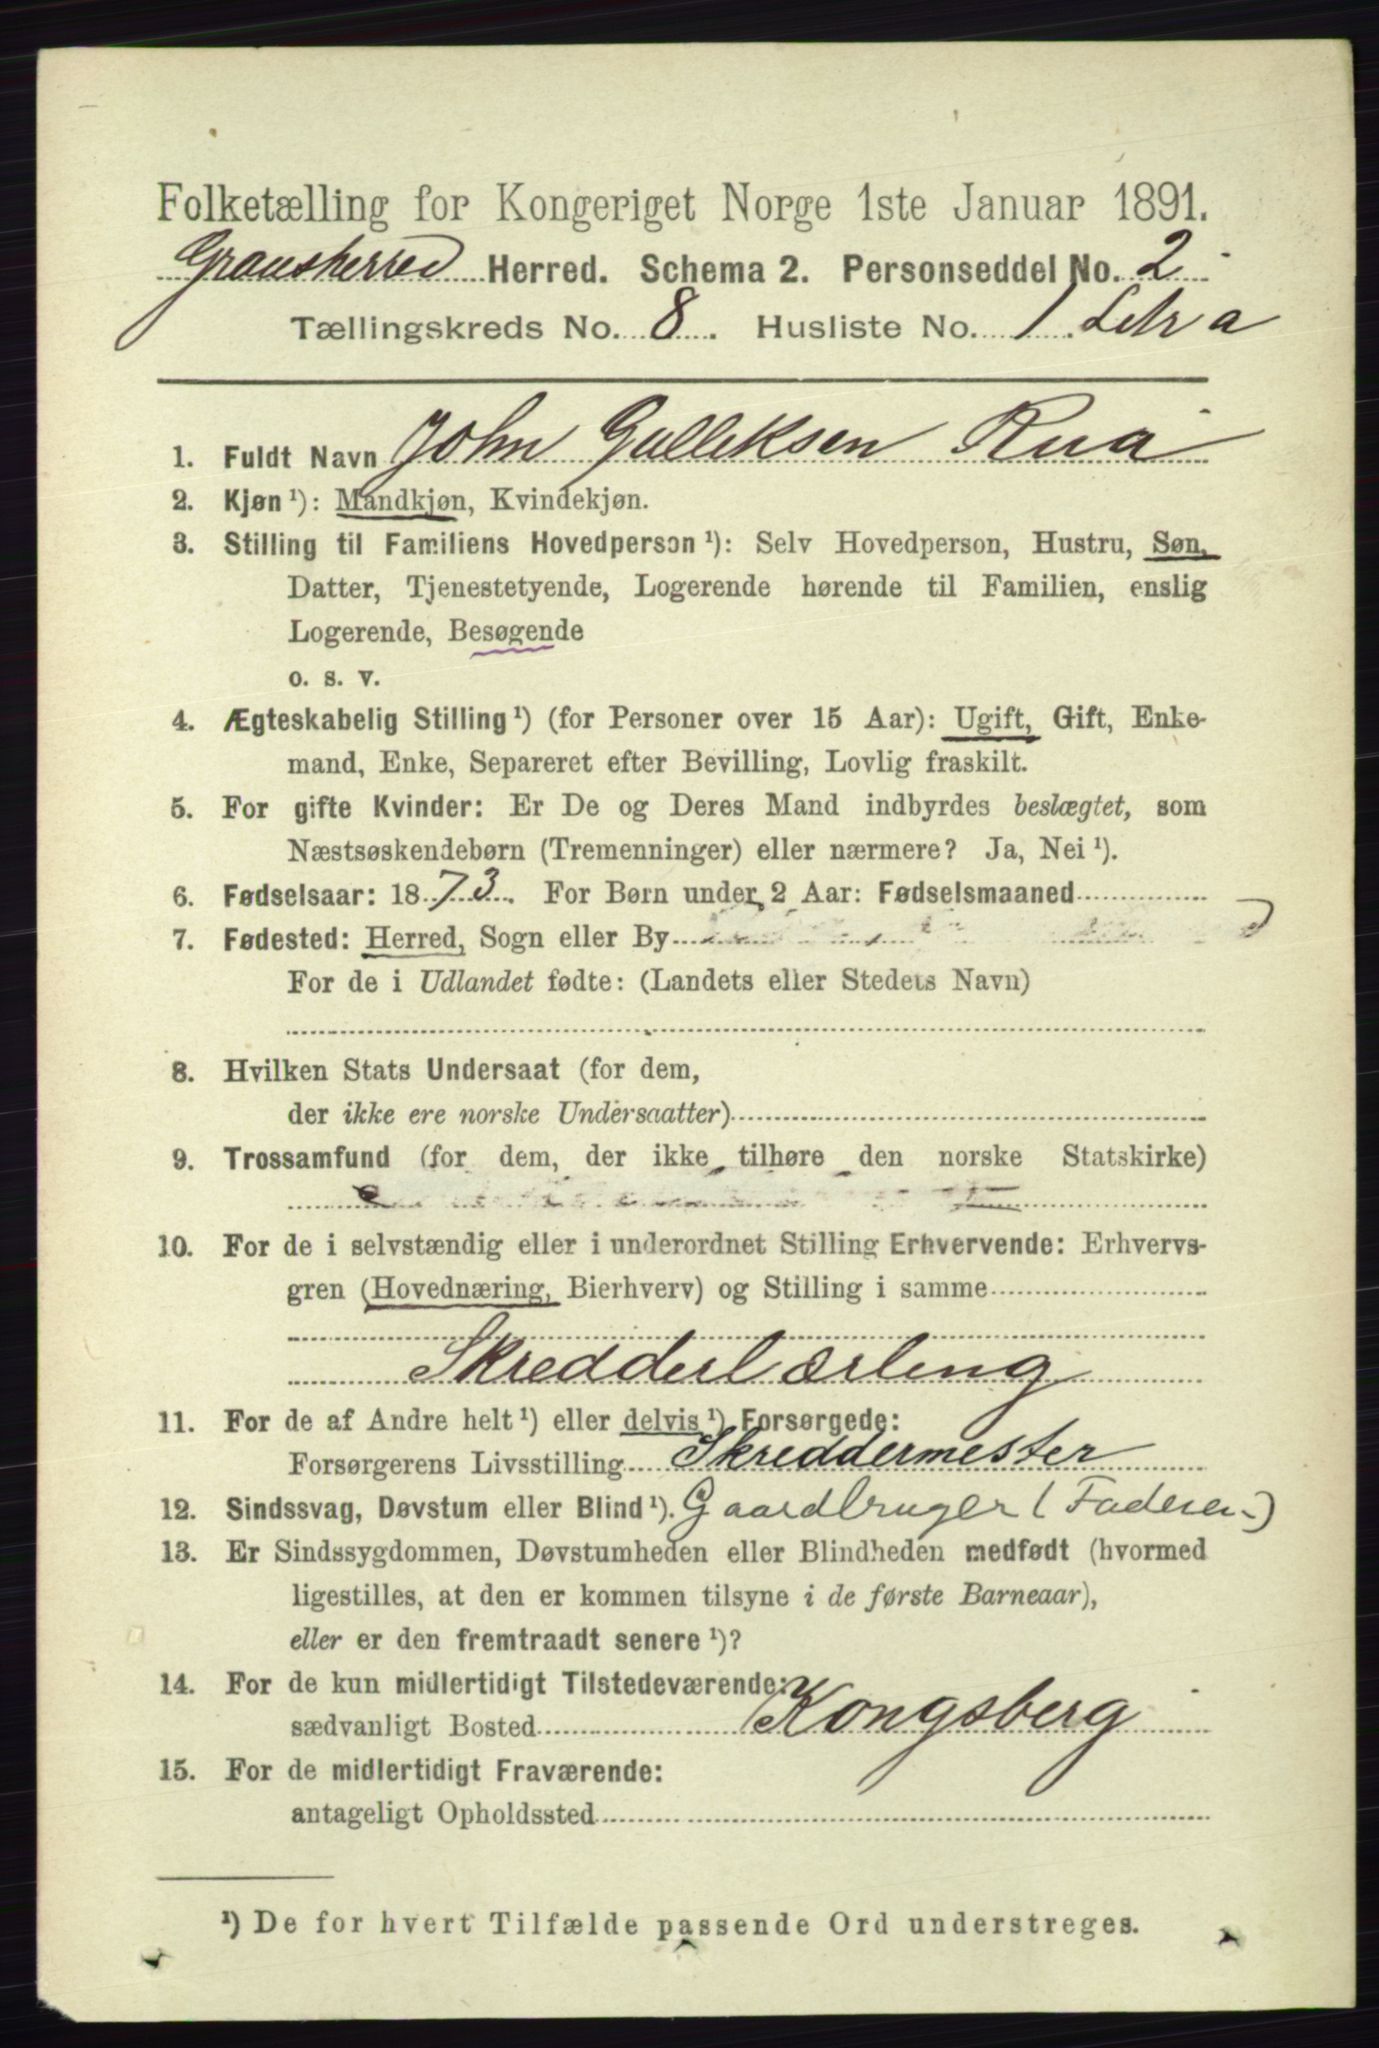 Folketælling for Kongeriget Norge 1ste Januar 1891.
Gransherred Herred. Schema 2. Personseddel No. 2
Tællingskreds No. 8. Husliste No. 1 Litr a
1. Fuldt Navn John Gulleksen Rua
2. Kjøn¹): Mandkjøn, Kvindekjøn.
3. Stilling til Familiens Hovedperson¹): Selv Hovedperson, Hustru, Søn,
Datter, Tjenestetyende, Logerende hørende til Familien, enslig
Logerende, Besøgende
o. s. v.
4. Ægteskabelig Stilling¹) (for Personer over 15 Aar): Ugift, Gift, Enke-
mand, Enke, Separeret efter Bevilling, Lovlig fraskilt.
5. For gifte Kvinder: Er De og Deres Mand indbyrdes beslægtet, som
Næstsøskendebørn (Tremenninger) eller nærmere? Ja, Nei¹).
6. Fødselsaar: 1873. For Børn under 2 Aar: Fødselsmaaned
7. Fødested: Herred, Sogn eller By
For de i Udlandet fødte: (Landets eller Stedets Navn)
8. Hvilken Stats Undersaat (for dem,
der ikke ere norske Undersaatter)
9. Trossamfund (for dem, der ikke tilhøre den norske Statskirke)
10. For de i selvstændig eller i underordnet Stilling Erhvervende: Erhvervs-
gren (Hovednæring, Bierhverv) og Stilling i samme
Skredderlærling
11. For de af Andre helt¹) eller delvis¹) Forsørgede:
Forsørgerens Livsstilling Skreddermester
12. Sindssvag, Døvstum eller Blind¹). Gaardbruger (Faderen)
13. Er Sindssygdommen, Døvstumheden eller Blindheden medfødt (hvormed
ligestilles, at den er kommen tilsyne i de første Barneaar),
eller er den fremtraadt senere¹)?
14. For de kun midlertidigt Tilstedeværende:
sædvanligt Bosted Kongsberg
15. For de midlertidigt Fraværende:
antageligt Opholdssted
¹) De for hvert Tilfælde passende Ord understreges.